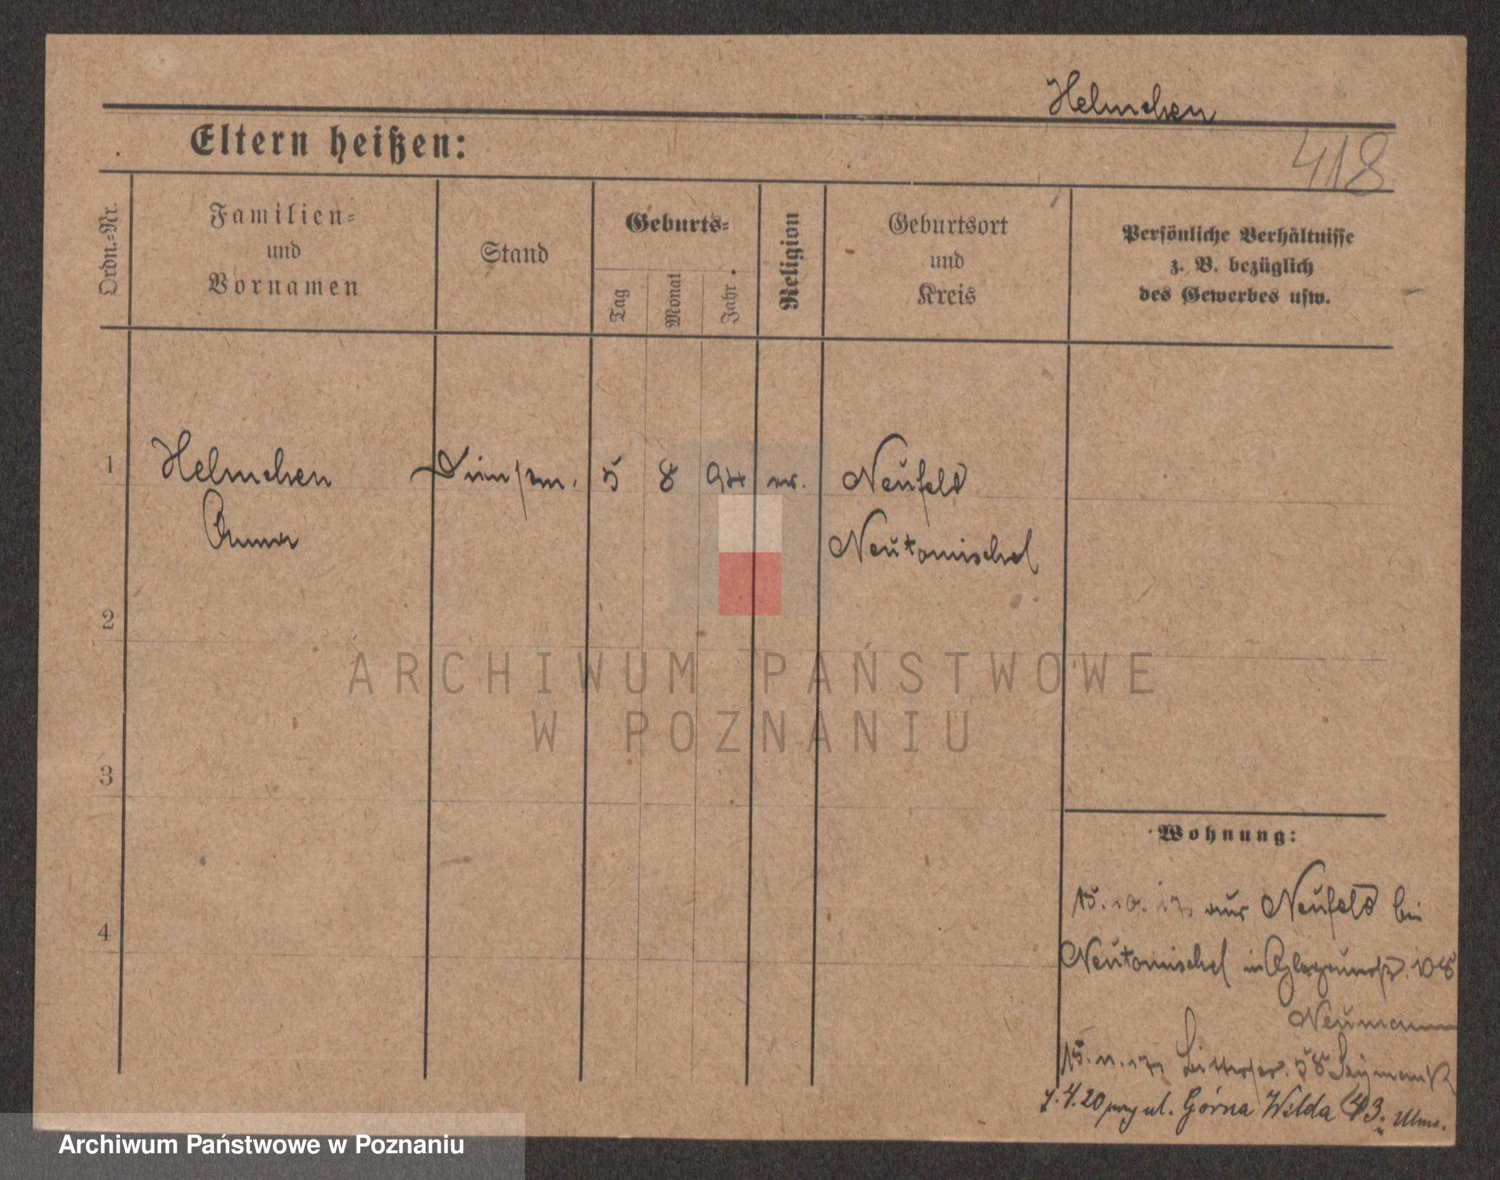 Helmchen
418
Eltern heißen:
Ordn.-Nr.
Familien-
und
Vornamen
Stand
Geburts-
Tag
Monat
Jahr
Religion
Geburtsort
und
Kreis
Persönliche Verhältnisse
z. B. bezüglich
des Gewerbes usw.
1
Helmchen 5 8 94 Neufeld
Anna Neutomischel
2
3
4
Wohnung:
15. 10. 17 aus Neufeld bei
Neutomischel in
Neumann
15. 11. 17 58
7. 4. 20 przy ul. Górna Wilda 43
ARCHIWUM PAŃSTWOWE
W POZNANIU
Archiwum Państwowe w Poznaniu